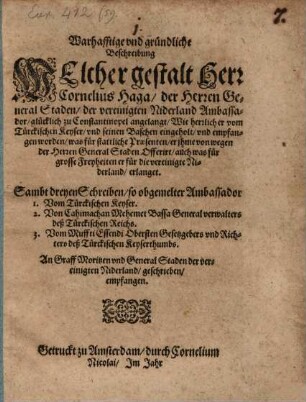 Eur. 412 (51)
7.
1.
Warhafftige vnd gründliche
Beschreibung
WElcher gestalt Herr
Cornelius Haga/ der Herren Ge-
neral Staden/ der vereinigten Niderland Ambassa-
dor/ glücklich zu Constantinopel angelangt/ Wie herrlich er vom
Türckischen Keyser/ vnd seinen Baschen eingeholt/ vnd empfan-
gen worden/ was für stattliche Præsenten/ er jhme von wegen
der Herren General Staden Offerirt/ auch was für
grosse Freyheiten er für die vereinigte Ni-
derland/ erlanget.
Sambt dreyen Schreiben/ so obgemelter Ambassador
1. Vom Türckischen Keyser.
2. Von Cahimachan Mehemet Bassa General verwalters
deß Türckischen Reichs.
3. Vom Muffti Effendi Obersten Gesetzgebers vnd Rich-
ters deß Türckischen Keyserthumbs.
An Graff Moritzen vnd General Staden der ver-
einigten Niderland/ geschrieben/
empfangen.
Getruckt zu Amsterdam/ durch Cornelium
Nicolai/ Im Jahr